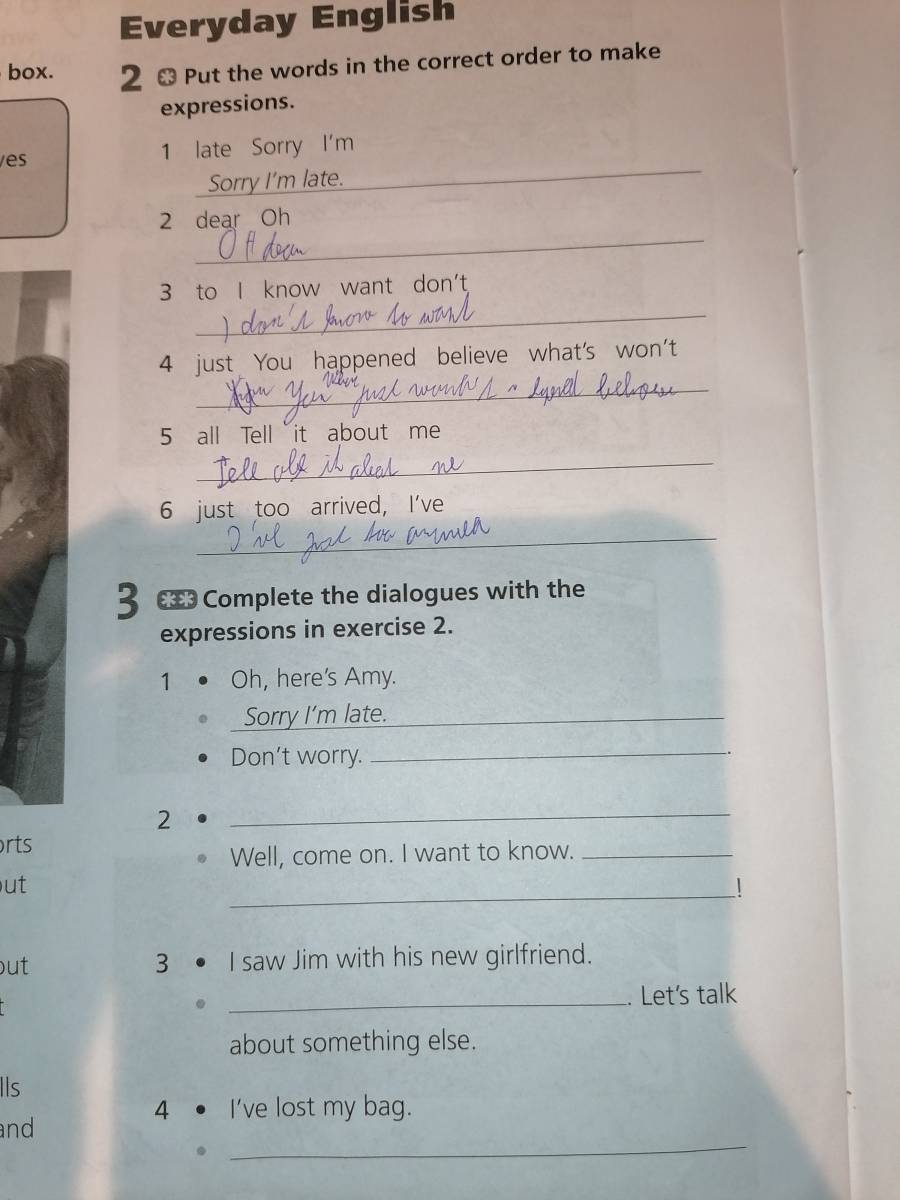 Everyday English
box.
2 Put the words in the correct order to make
expressions.
1 late Sorry I'm
ves
Sorry I'm late.
2 dear Oh
OH dear
3 to I know want don't
I don't know to want
4 just You happened believe what's won't
You just
5 all Tell it about me
Tell all it about me
6 just too arrived, I've
I've just too arrived
3 Complete the dialogues with the
expressions in exercise 2.
1 • Oh, here's Amy.
• Sorry I'm late.
• Don't worry. .
2 •
orts
• Well, come on. I want to know.
out
!
out
3 • I saw Jim with his new girlfriend.
t
• . Let's talk
about something else.
lls
4 • I've lost my bag.
and
•